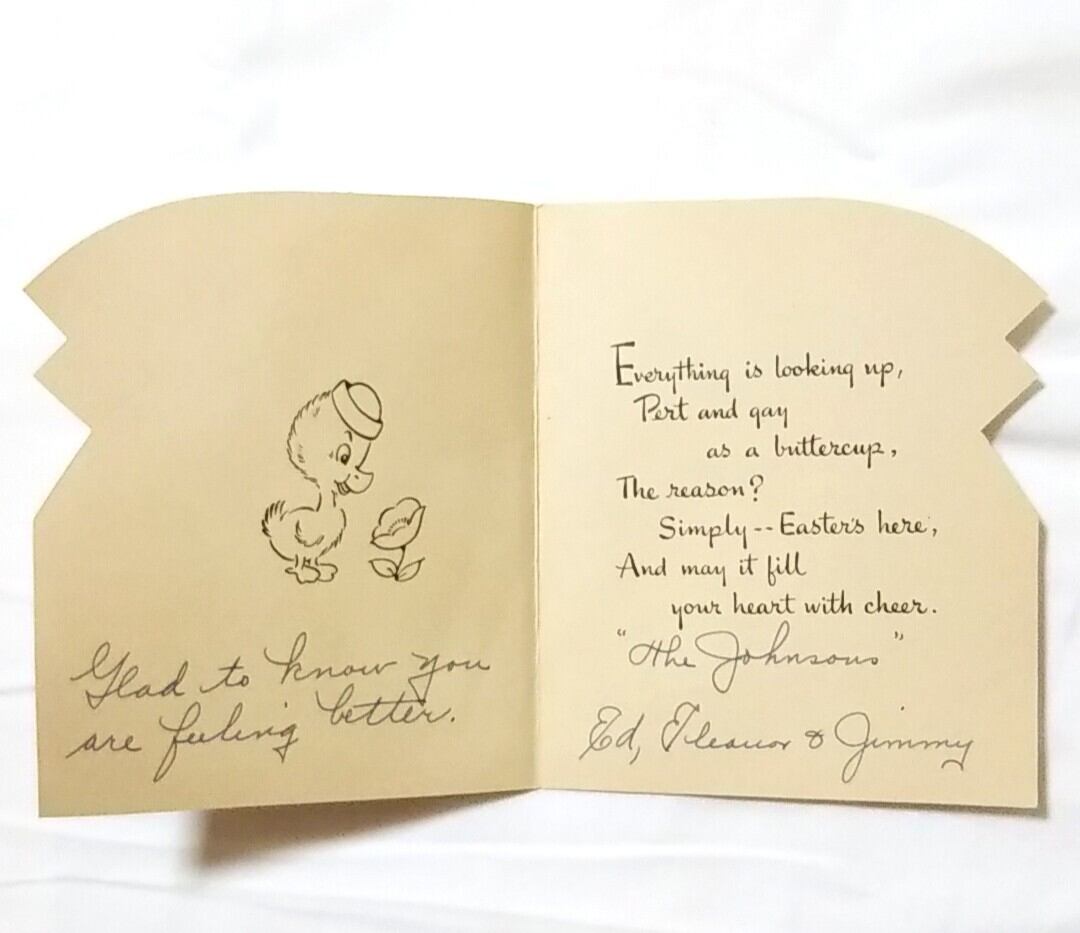 Glad to know you
are feeling better.
Everything is looking up,
Pert and gay
as a buttercup,
The reason?
Simply -- Easter's here,
And may it fill
your heart with cheer.
"The Johnsons"
Ed, Eleanor & Jimmy